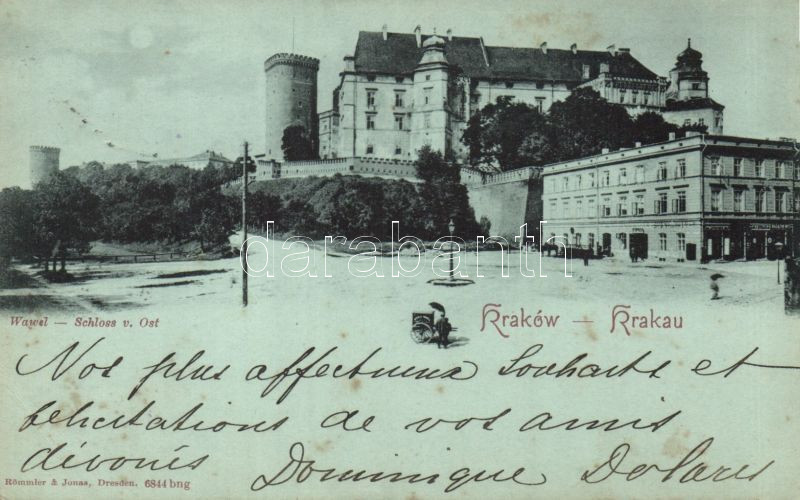 darabanth
Wawel — Schloss v. Ost
Kraków — Krakau
Nos plus affectueux Souhaits et
félicitations de vos amis
dévoués Dominique Dolores
Römmler & Jonas, Dresden. 6844 bng